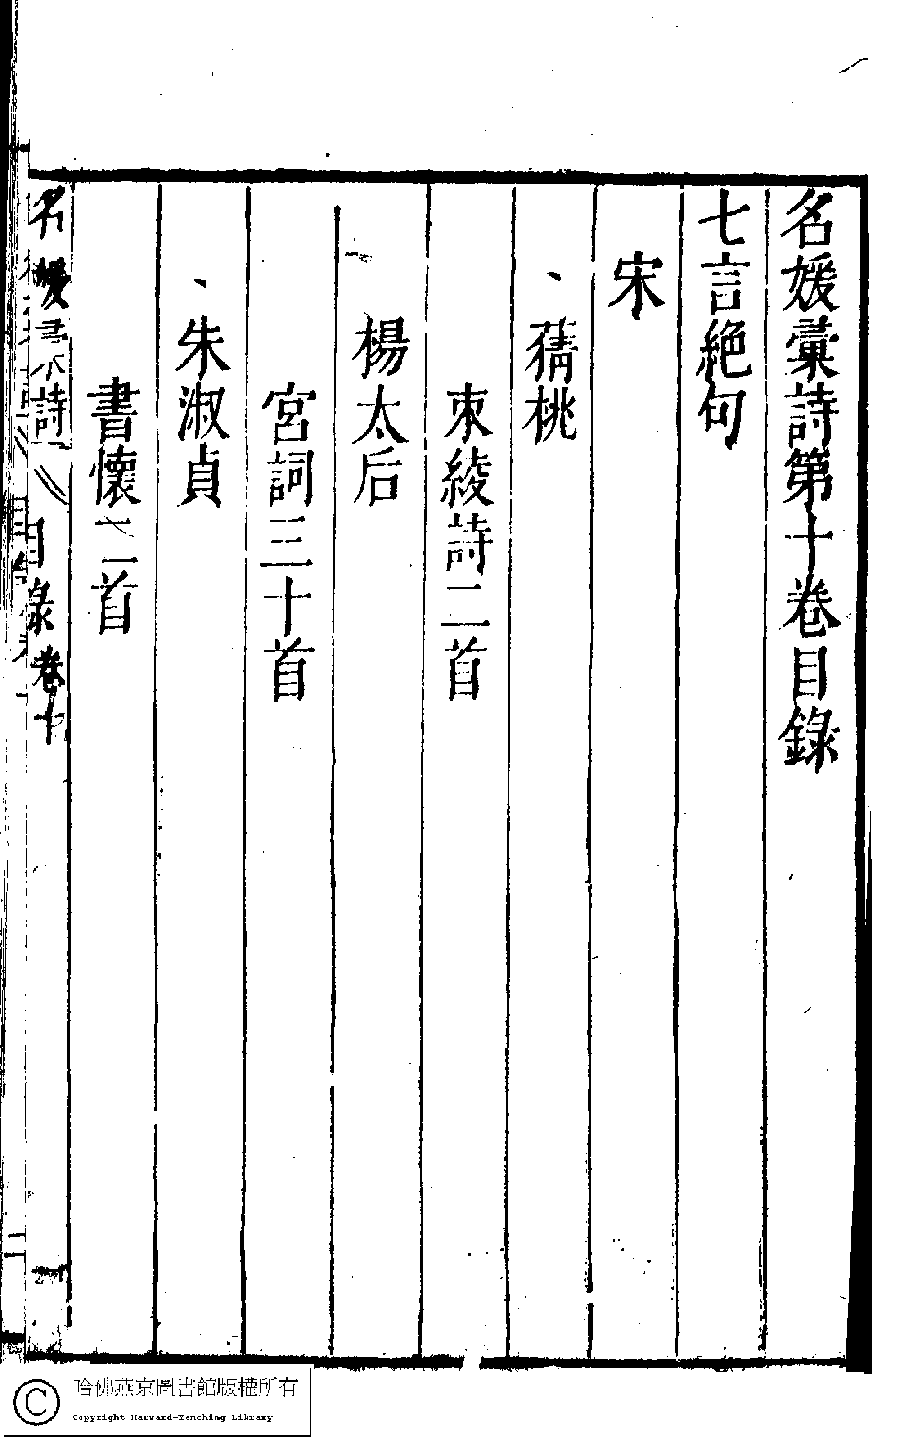 名媛彙詩第十卷目錄
七言絶句
宋
、蒨桃
束綾詩二首
楊太后
宮詞三十首
、朱淑貞
書懷二首
名媛彙詩
目錄卷十
一
哈佛燕京圖書館版權所有
Copyright Harvard-Yenching Library